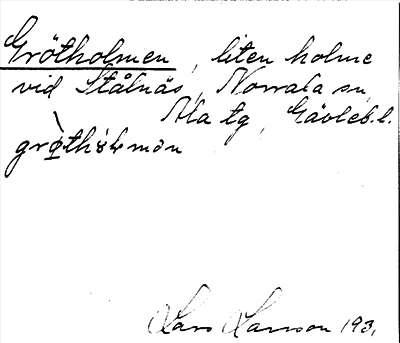 Grötholmen, liten holme
vid Stålnäs, Norrala sn,
Ala tg, Gävleb. l.
Lars Larsson 193,